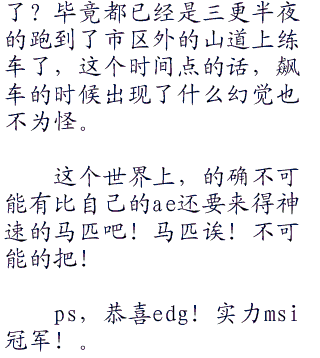 了？毕竟都已经是三更半夜
的跑到了市区外的山道上练
车了，这个时间点的话，飙
车的时候出现了什么幻觉也
不为怪。
这个世界上，的确不可
能有比自己的ae还要来得神
速的马匹吧！马匹诶！不可
能的把！
ps，恭喜edg！实力msi
冠军！。